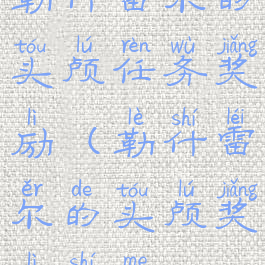 勒什雷尔的
tóu lú rèn wù jiǎng
头颅任务奖
lì lè shí léi
励(勒什雷
ěr de tóu lú jiǎng
尔的头颅奖
lì shí me